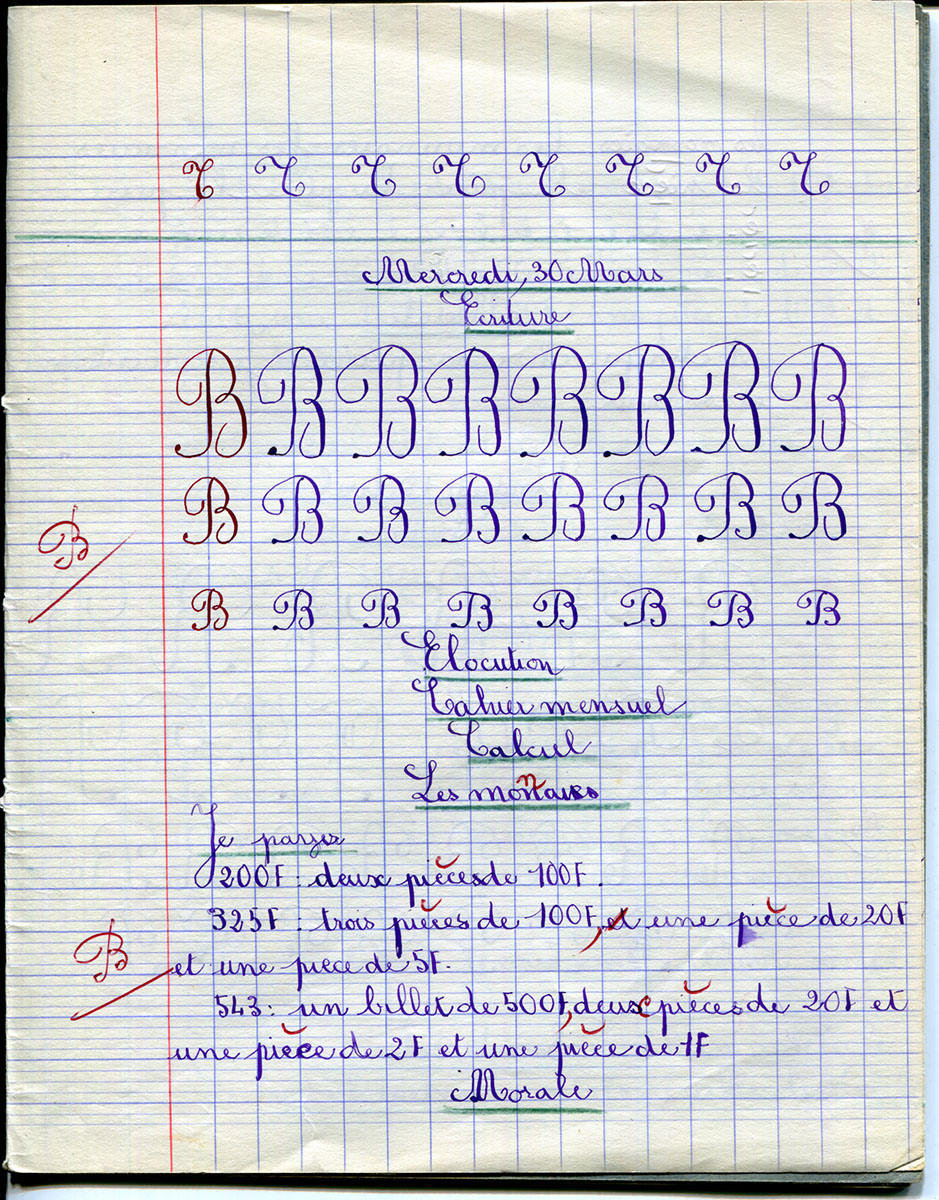 C C C C C C C C
Mercredi, 30 Mars
Ecriture
B B B B B B B B
B B B B B B B B
B
B B B B B B B B
Elocution
Cahier mensuel
Calcul
Les monnaies
Je payer
200F : deux pièces de 100F.
325F : trois pièces de 100F, et une pièce de 20F
B
et une piece de 5F.
543 : un billet de 500F, deux pièces de 20F et
une pièce de 2F et une pièce de 1F
Morale